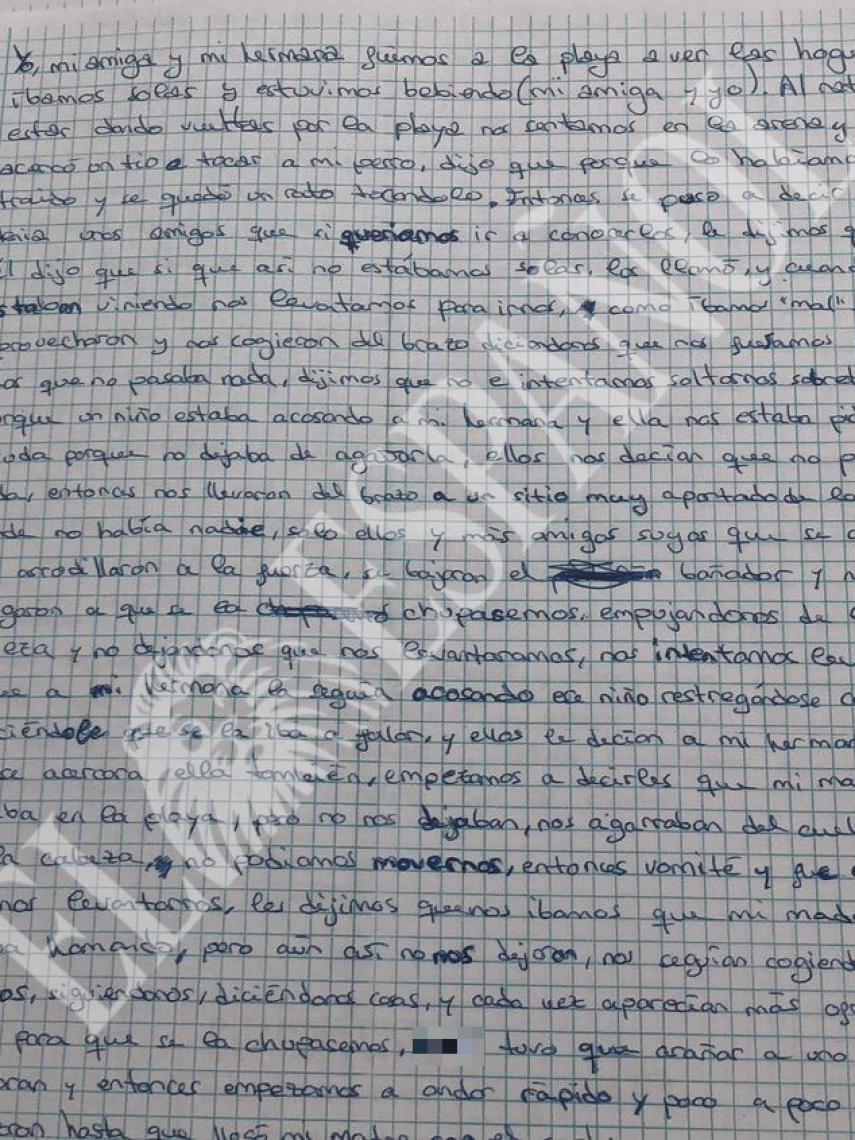 Yo, mi amiga y mi hermana fuimos a la playa a ver las hogu
íbamos solas y estuvimos bebiendo (mi amiga y yo). Al rat
estar dando vueltas por la playa nos sentamos en la arena y
acercó un tio a tocar a mi perro, dijo que porque lo habíamo
traido y se quedó un rato tocandolo. Entonces se puso a decir
tenia unos amigos que si queriamos ir a conocerlos, le dijimos q
el dijo que si que así no estábamos solas, los llamó, y cuan
staban viniendo nos levantamos para irnos, como íbamos "mal"
provecharon y nos cogieron del brazo diciendonos que nos fueramos
os que no pasaba nada, dijimos que no e intentamos soltarnos sobre
rque un niño estaba acosando a mi hermana y ella nos estaba pi
uda porque no dejaba de agarrarla, ellos nos decían que no p
da, entonces nos llevaron del brazo a un sitio muy apartado de la
de no había nadie, solo ellos y más amigos suyos que se a
arrodillaron a la fuerza, se bajaron el bañador y n
garon a que se la chupasemos, empujandonos de
eza y no dejandonos que nos levantaramos, nos intentamos lev
e a mi hermana la seguía acosando ese niño restregándose
ciéndole que se la iba a follar, y ellos le decían a mi herma
se acercara ella también, empezamos a decirles que mi ma
ba en la playa, pero no nos dejaban, nos agarraban del cuel
a cabeza, no podíamos movernos, entonces vomité y fue
nos levantarnos, les dijimos que nos íbamos que mi mad
a llamando, pero aún así no nos dejaron, nos seguían cogiend
os, siguiendonos, diciéndonos cosas, y cada vez aparecían más
para que se la chupasemos, tuvo que arañar a uno
aran y entonces empezamos a andar rápido y poco a poco
eran hasta que llegó mi madre